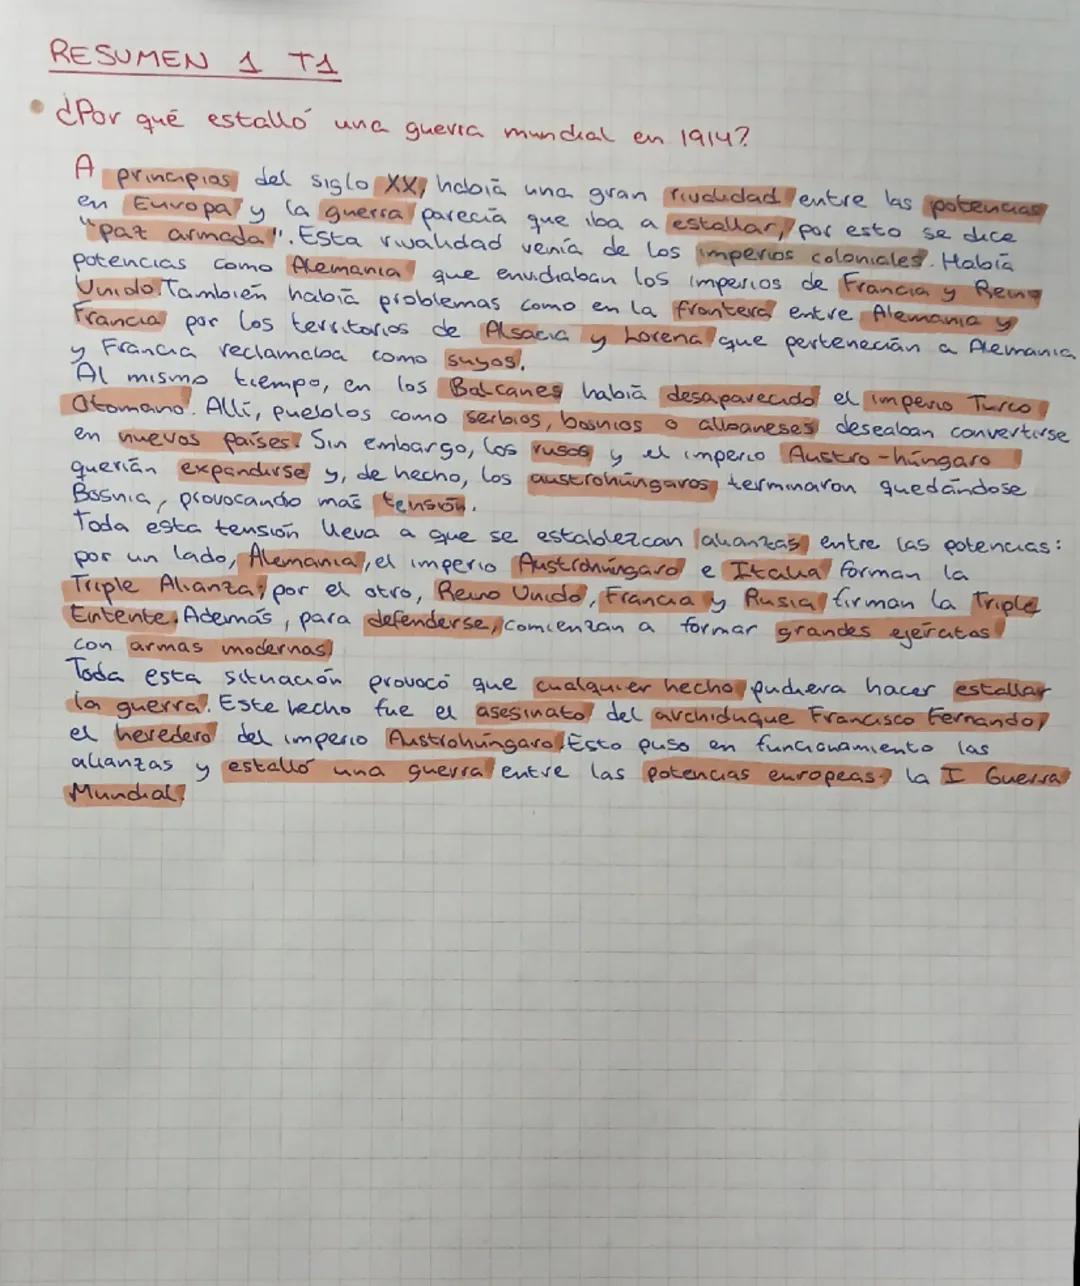 RESUMEN 1 T1
¿Por qué estalló una guerra mundial en 1914?
A principios del siglo XX, había una gran rivalidad entre las potencias
en Europa y la guerra parecía que iba a estallar, por esto se dice
"paz armada". Esta rivalidad venía de los imperios coloniales. Había
potencias como Alemania que envidiaban los imperios de Francia y Reino
Unido. También había problemas como en la frontera entre Alemania y
Francia por los territorios de Alsacia y Lorena que pertenecían a Alemania
y Francia reclamaba como suyos.
Al mismo tiempo, en los Balcanes había desaparecido el imperio Turco
Otomano. Allí, pueblos como serbios, bosnios o albaneses deseaban convertirse
en nuevos países. Sin embargo, los rusos y el imperio Austro-húngaro
querían expandirse y, de hecho, los austrohúngaros terminaron quedándose
Bosnia, provocando más tensión.
Toda esta tensión lleva a que se establezcan alianzas entre las potencias:
por un lado, Alemania, el imperio Austrohúngaro e Italia forman la
Triple Alianza; por el otro, Reino Unido, Francia y Rusia firman la Triple
Entente. Además, para defenderse, comienzan a formar grandes ejércitos
con armas modernas.
Toda esta situación provocó que cualquier hecho pudiera hacer estallar
la guerra. Este hecho fue el asesinato del archiduque Francisco Fernando,
el heredero del imperio Austrohúngaro. Esto puso en funcionamiento las
alianzas y estalló una guerra entre las potencias europeas: la I Guerra
Mundial.